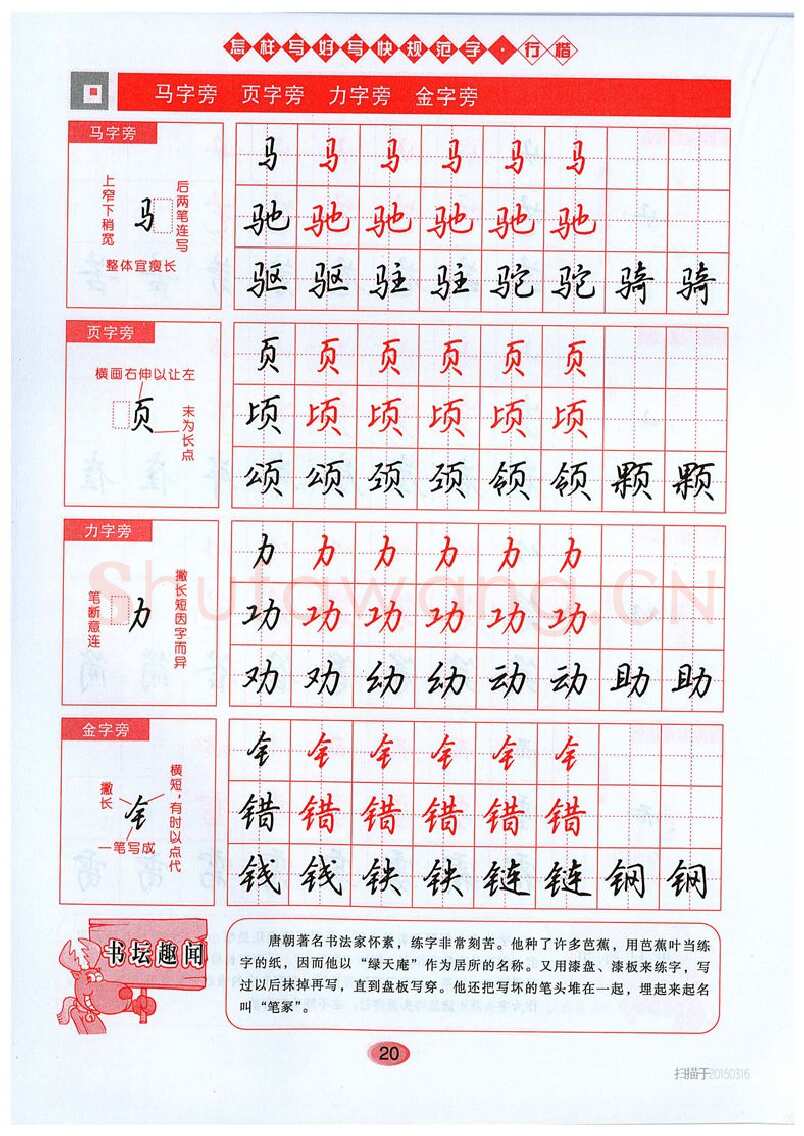 怎样写好写快规范字·行楷
马字旁 页字旁 力字旁 金字旁
马字旁
上窄下稍宽
马
后两笔连写
整体宜瘦长
马 马 马 马 马 马
驰 驰 驰 驰 驰 驰
驱 驱 驻 驻 驼 驼 骑 骑
页字旁
横画右伸以让左
页
末为长点
页 页 页 页 页 页
顷 顷 顷 顷 顷 顷
颂 颂 颈 颈 领 领 颗 颗
力字旁
笔断意连
力
撇长短因字而异
力 力 力 力 力 力
功 功 功 功 功 功
劝 劝 幼 幼 动 动 助 助
金字旁
撇长
钅
横短，有时以点代
一笔写成
钅 钅 钅 钅 钅 钅
错 错 错 错 错 错
钱 钱 铁 铁 链 链 钢 钢
Shufawang.CN
书坛趣闻
唐朝著名书法家怀素，练字非常刻苦。他种了许多芭蕉，用芭蕉叶当练
字的纸，因而他以“绿天庵”作为居所的名称。又用漆盘、漆板来练字，写
过以后抹掉再写，直到盘板写穿。他还把写坏的笔头堆在一起，埋起来起名
叫“笔冢”。
20
扫描于20150316